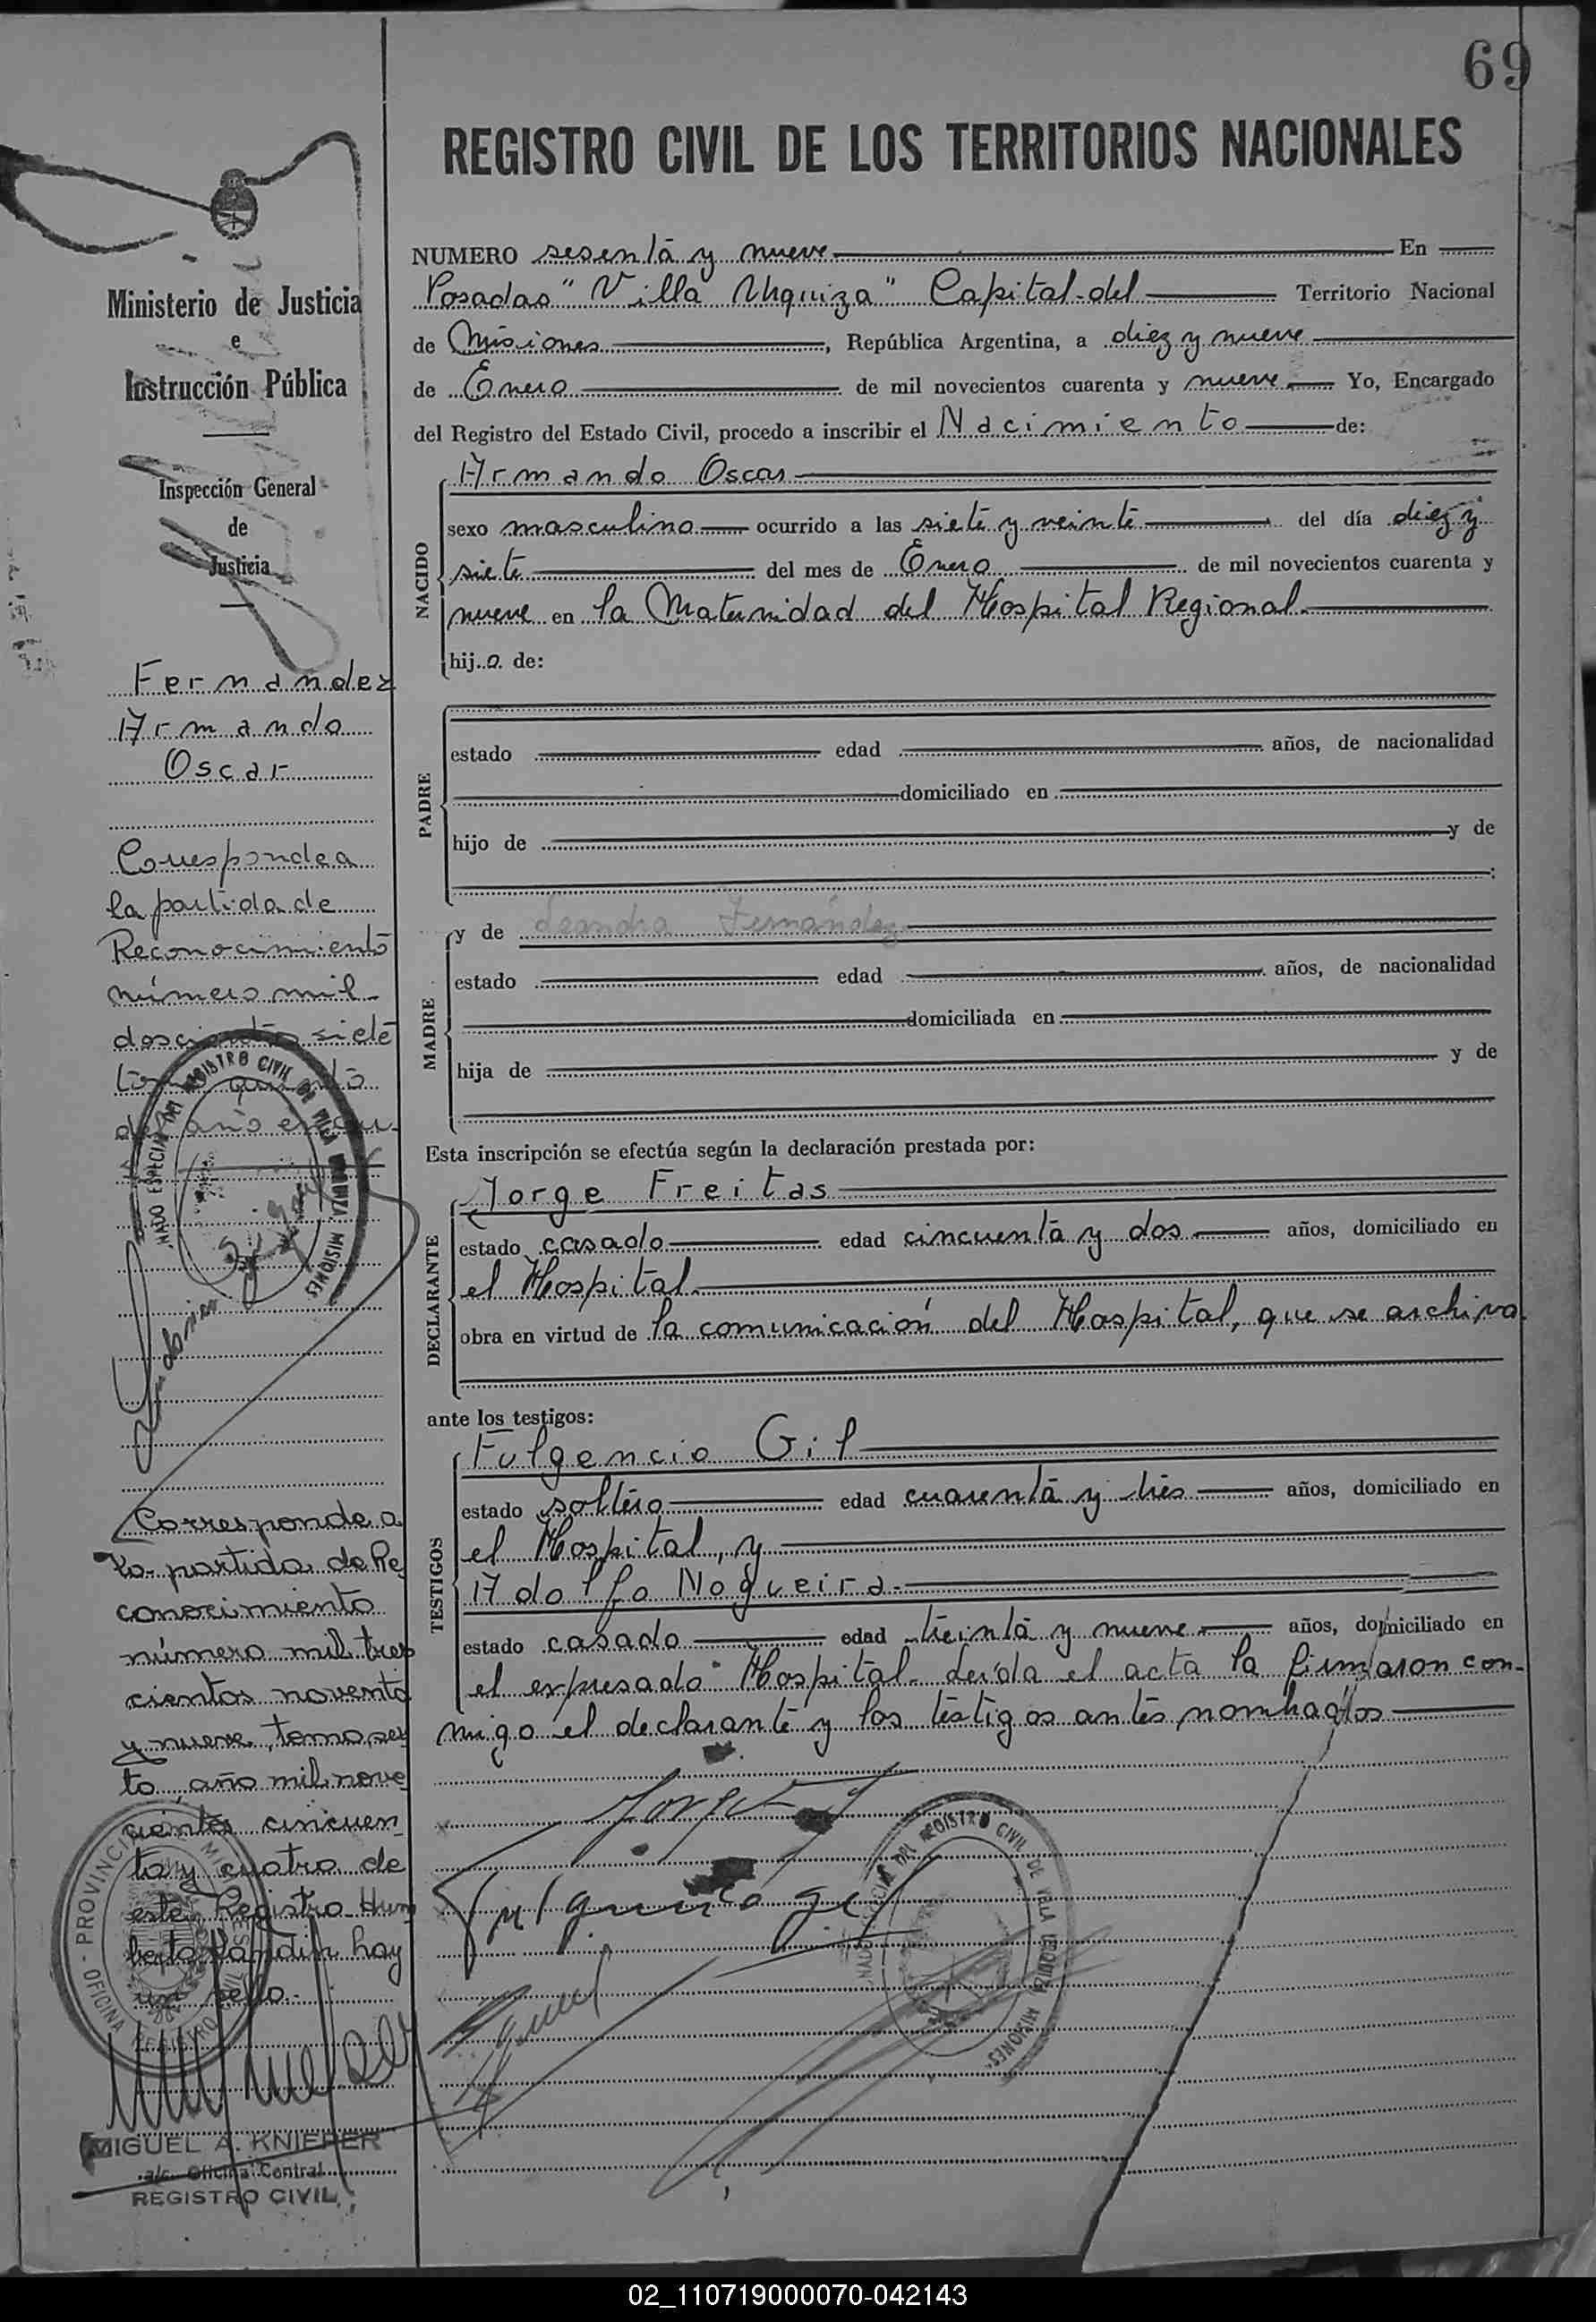 69
REGISTRO CIVIL DE LOS TERRITORIOS NACIONALES
Ministerio de Justicia
e
Instrucción Pública
Inspección General
de
Justicia
Fernandez
Armando
Oscar
Corresponde a
la partida de
Reconocimiento
número mil
doscientos siete
tomo quinto
del año en cur-
Corresponde a
la partida de Re
conocimiento
número mil tres
cientos noventa
y nueve, tomo sex
to, año mil nove
cientos cincuen
ta y cuatro de
este Registro Hum
berto hay
un sello.-
MIGUEL A. KNIEPER
a/c. Oficina Central
REGISTRO CIVIL
NUMERO sesenta y nueve En
Posadas "Villa Urquiza" Capital del Territorio Nacional
de Misiones, República Argentina, a diez y nueve
de Enero de mil novecientos cuarenta y nueve Yo, Encargado
del Registro del Estado Civil, procedo a inscribir el Nacimiento de:
NACIDO
Armando Oscar
sexo masculino ocurrido a las siete y veinte del día diez y
siete del mes de Enero de mil novecientos cuarenta y
nueve en la Maternidad del Hospital Regional.
hijo de:
PADRE
estado edad años, de nacionalidad
domiciliado en
hijo de y de
MADRE
y de Leandra Fernández
estado edad años, de nacionalidad
domiciliada en
hija de y de
Esta inscripción se efectúa según la declaración prestada por:
DECLARANTE
Jorge Freitas
estado casado edad cincuenta y dos años, domiciliado en
el Hospital.
obra en virtud de la comunicación del Hospital, que se archiva.
ante los testigos:
TESTIGOS
Fulgencio Gil
estado soltero edad cuarenta y tres años, domiciliado en
el Hospital, y
Adolfo Nogueira.
estado casado edad treinta y nueve años, domiciliado en
el expresado Hospital. Leída el acta la firmaron con-
migo el declarante y los testigos antes nombrados
REGISTRO CIVIL DE VILLA URQUIZA MISIONES
02_110719000070-042143